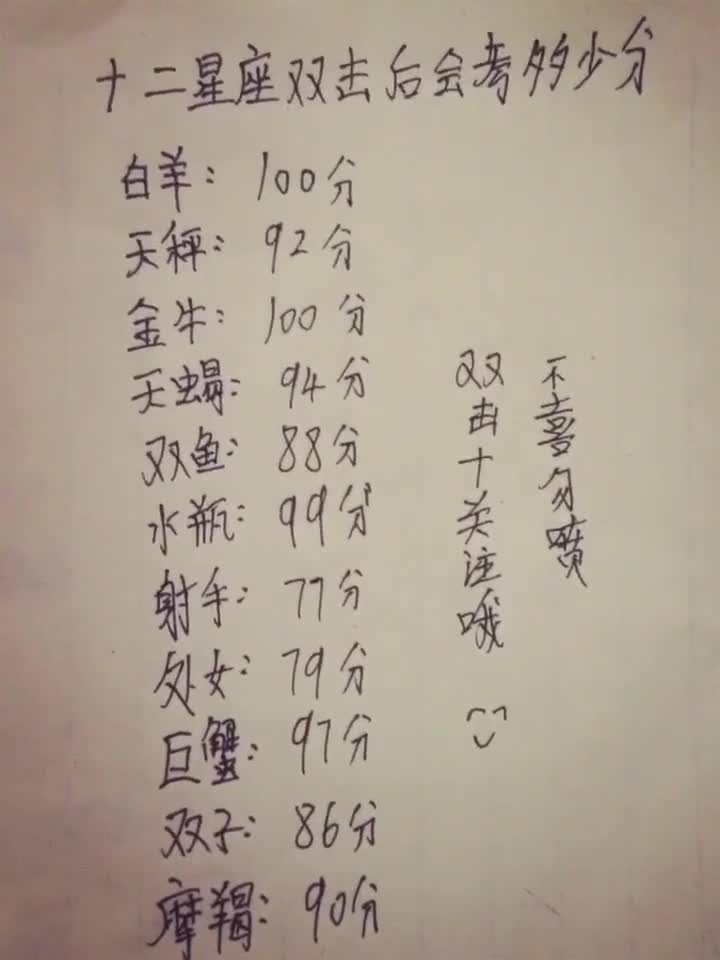 十二星座双击后会考多少分
白羊：100分
天秤：92分
金牛：100分
天蝎：94分
双鱼：88分
水瓶：99分
射手：77分
处女：79分
巨蟹：97分
双子：86分
摩羯：90分
不喜勿喷
双击+关注哦